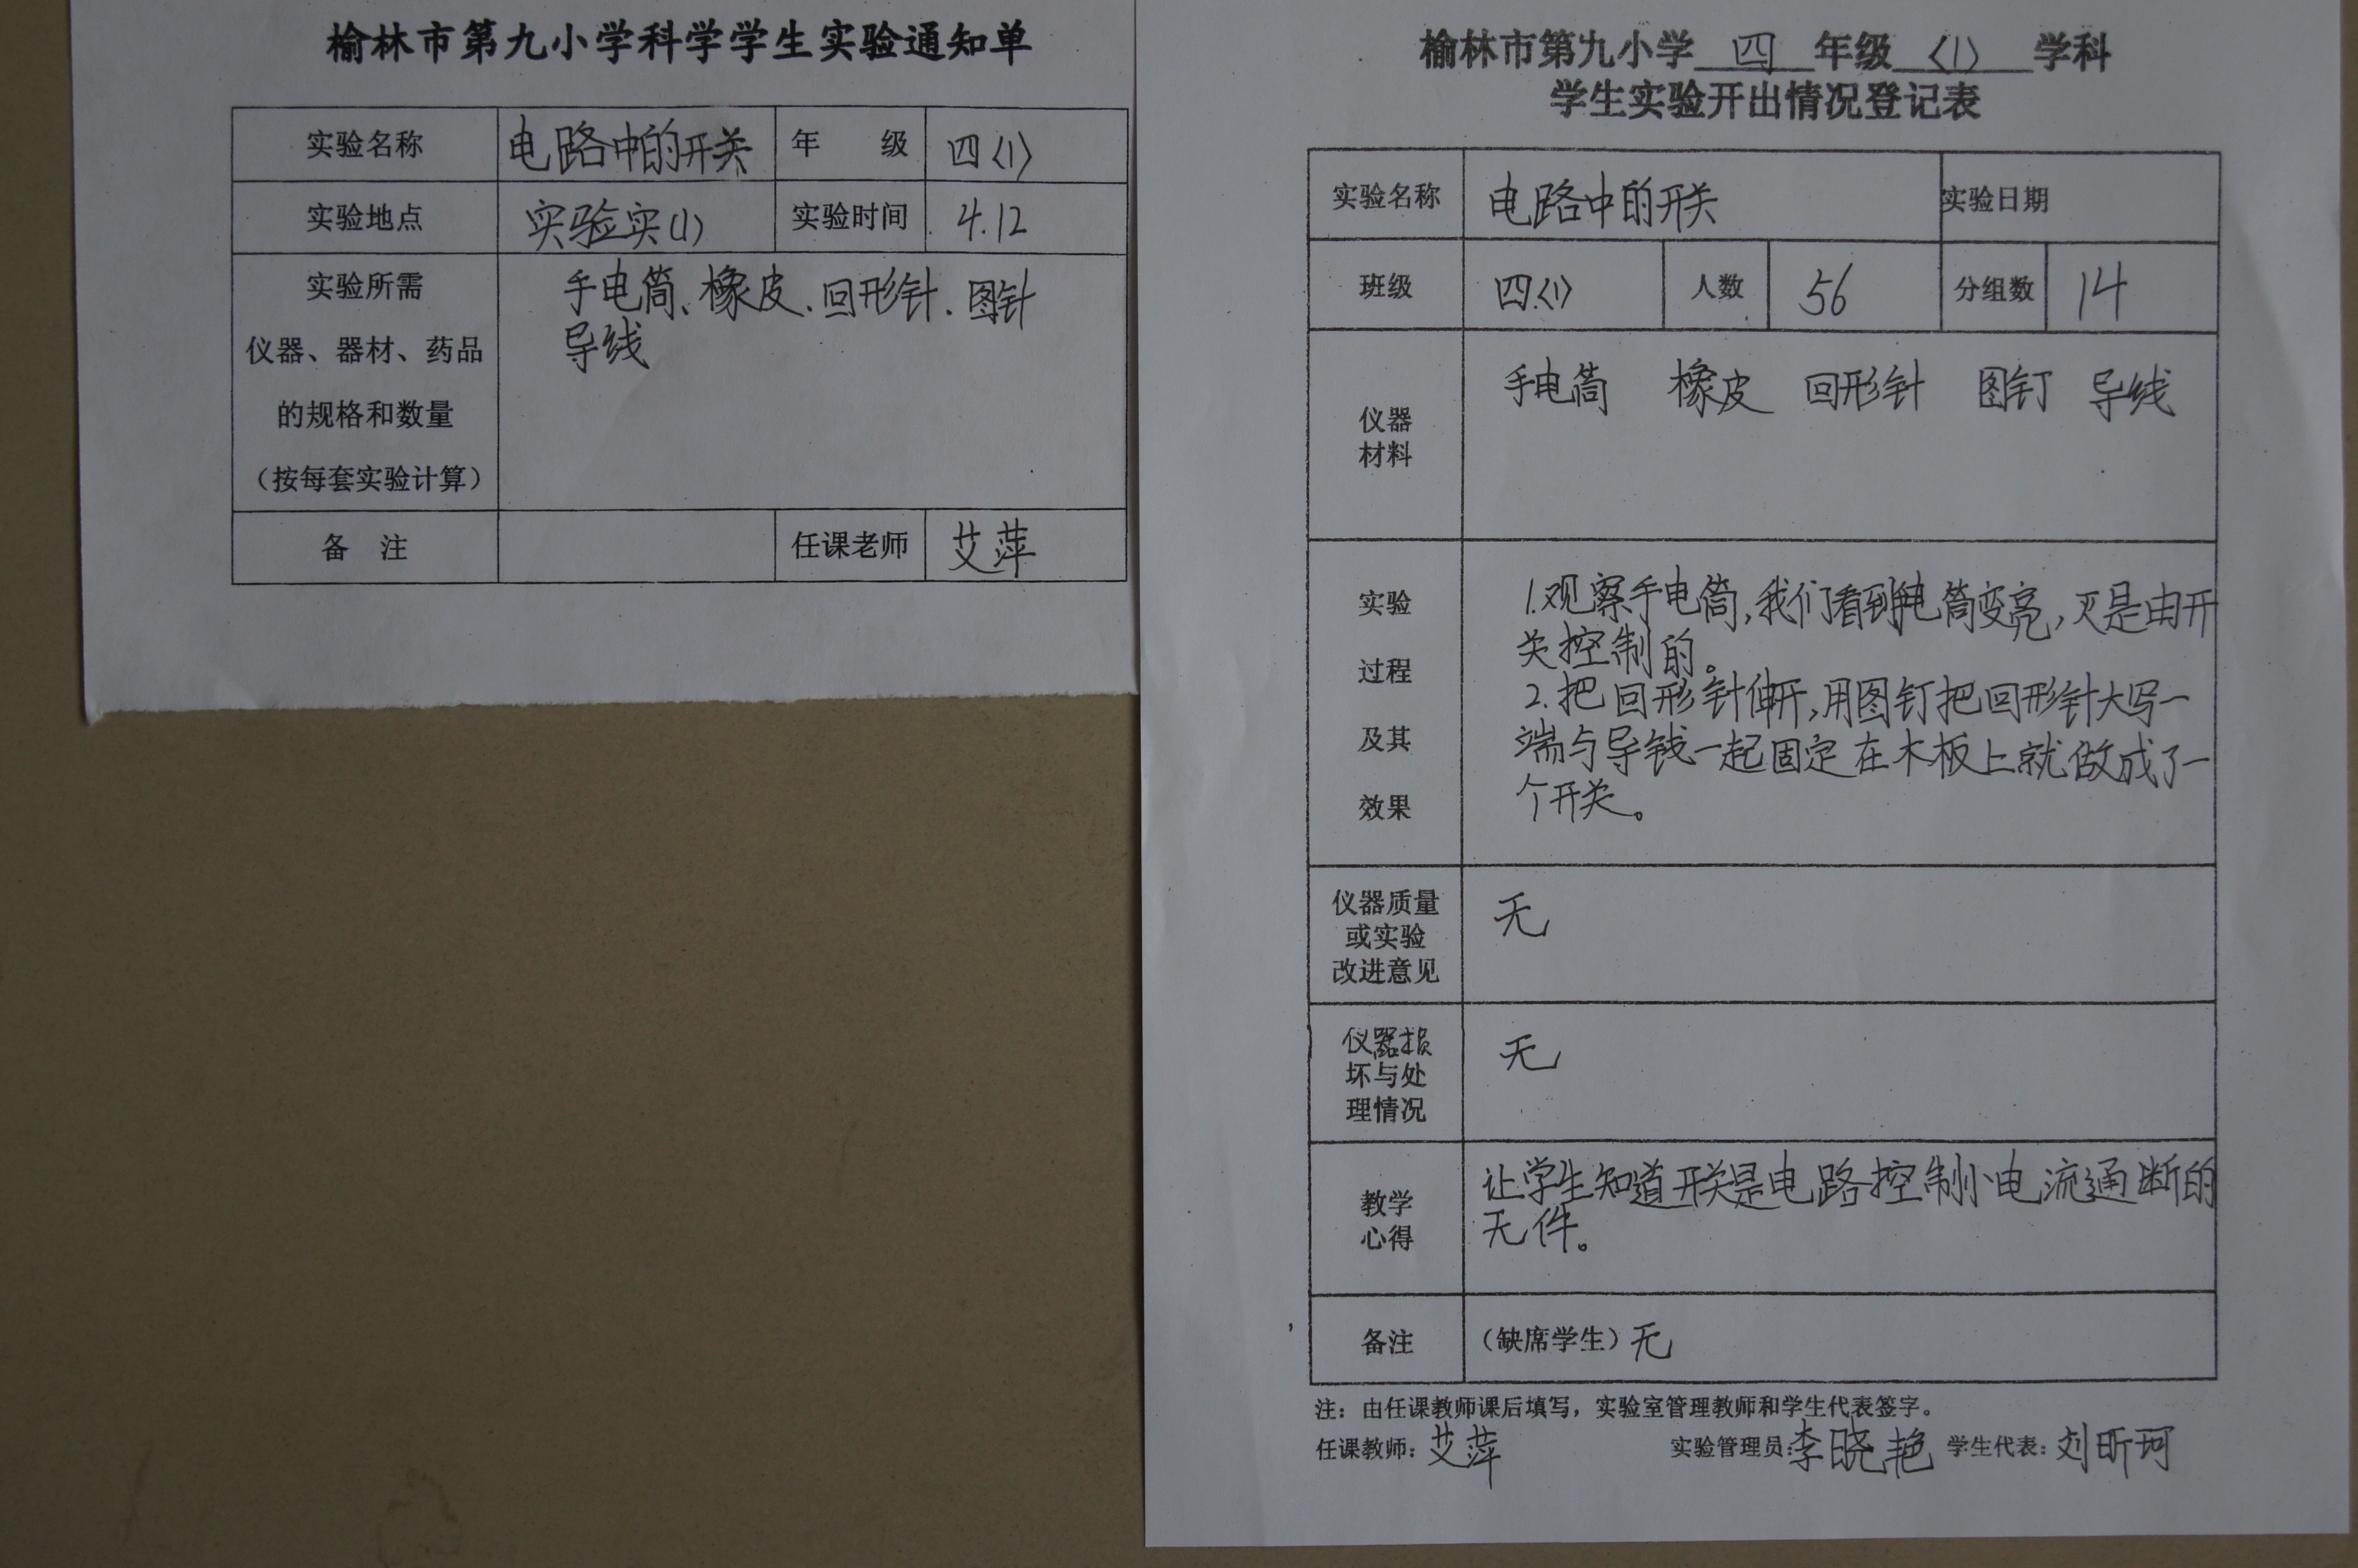 榆林市第九小学科学学生实验通知单
实验名称 电路中的开关 年 级 四〈1〉
实验地点 实验实(1) 实验时间 4.12
实验所需
仪器、器材、药品
的规格和数量
（按每套实验计算）
手电筒、橡皮、回形针、图针
导线
备 注 任课老师 艾萍
榆林市第九小学 四 年级 〈1〉 学科
学生实验开出情况登记表
实验名称 电路中的开关 实验日期
班级 四〈1〉 人数 56 分组数 14
仪器
材料
手电筒 橡皮 回形针 图钉 导线
实验
过程
及其
效果
1.观察手电筒,我们看到电筒变亮,灭是由开
关控制的。
2.把回形针伸开,用图钉把回形针大写一
端与导钱一起固定在木板上就做成了一
个开关。
仪器质量
或实验
改进意见
无
仪器损
坏与处
理情况
无
教学
心得
让学生知道开关是电路控制小电流通断的
无件。
备注 （缺席学生）无
注：由任课教师课后填写，实验室管理教师和学生代表签字。
任课教师：艾萍 实验管理员：李晓艳 学生代表：刘昕珂